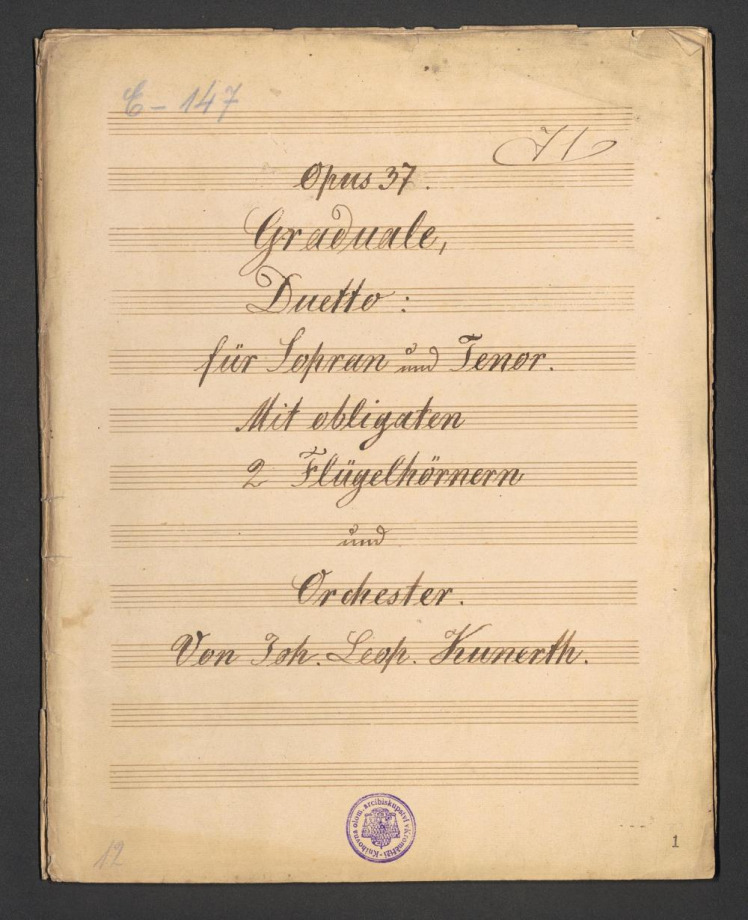 C-147
Opus 37.
Graduale,
Duetto:
für Sopran und Tenor.
Mit obligaten
2 Flügelhörnern
und
Orchester.
Von Joh. Leop. Kunerth.
Knihovna olom. arcibiskupství v Kroměříži
12
1